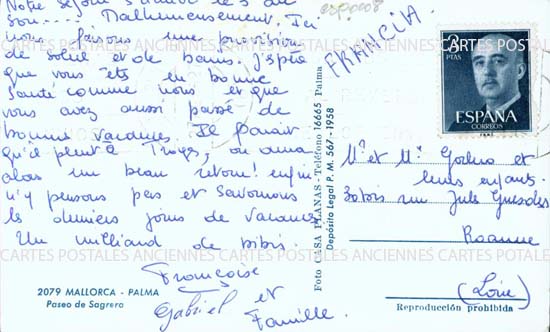 Notre séjour s'achève le 3 au
soir.... Malheureusement. Ici
nous faisons une provision
de soleil et de bains. J'espère
que vous êtes en bonne
santé comme nous et que
vous avez aussi passé de
bonnes vacances. Il parait
qu'il pleut à Troyes, on aura
alors un beau retour! enfin
n'y pensons pas et savourons
les derniers jours de vacances
Un milliard de bibis.
Françoise
Gabriel et
Famille.
2079 MALLORCA - PALMA
Paseo de Sagrera
Foto CASA PLANAS - Teléfono 16665 Palma
Depósito Legal P. M. 567 - 1958
FRANCIA
3
PTAS
ESPAÑA
CORREOS
Mr et Me et
leurs enfants
30 bis rue Jules Guesdes
Roanne
(Loire)
Reproducción prohibida
CARTES POSTALES ANCIENNES CARTES POSTALES ANCIENNES